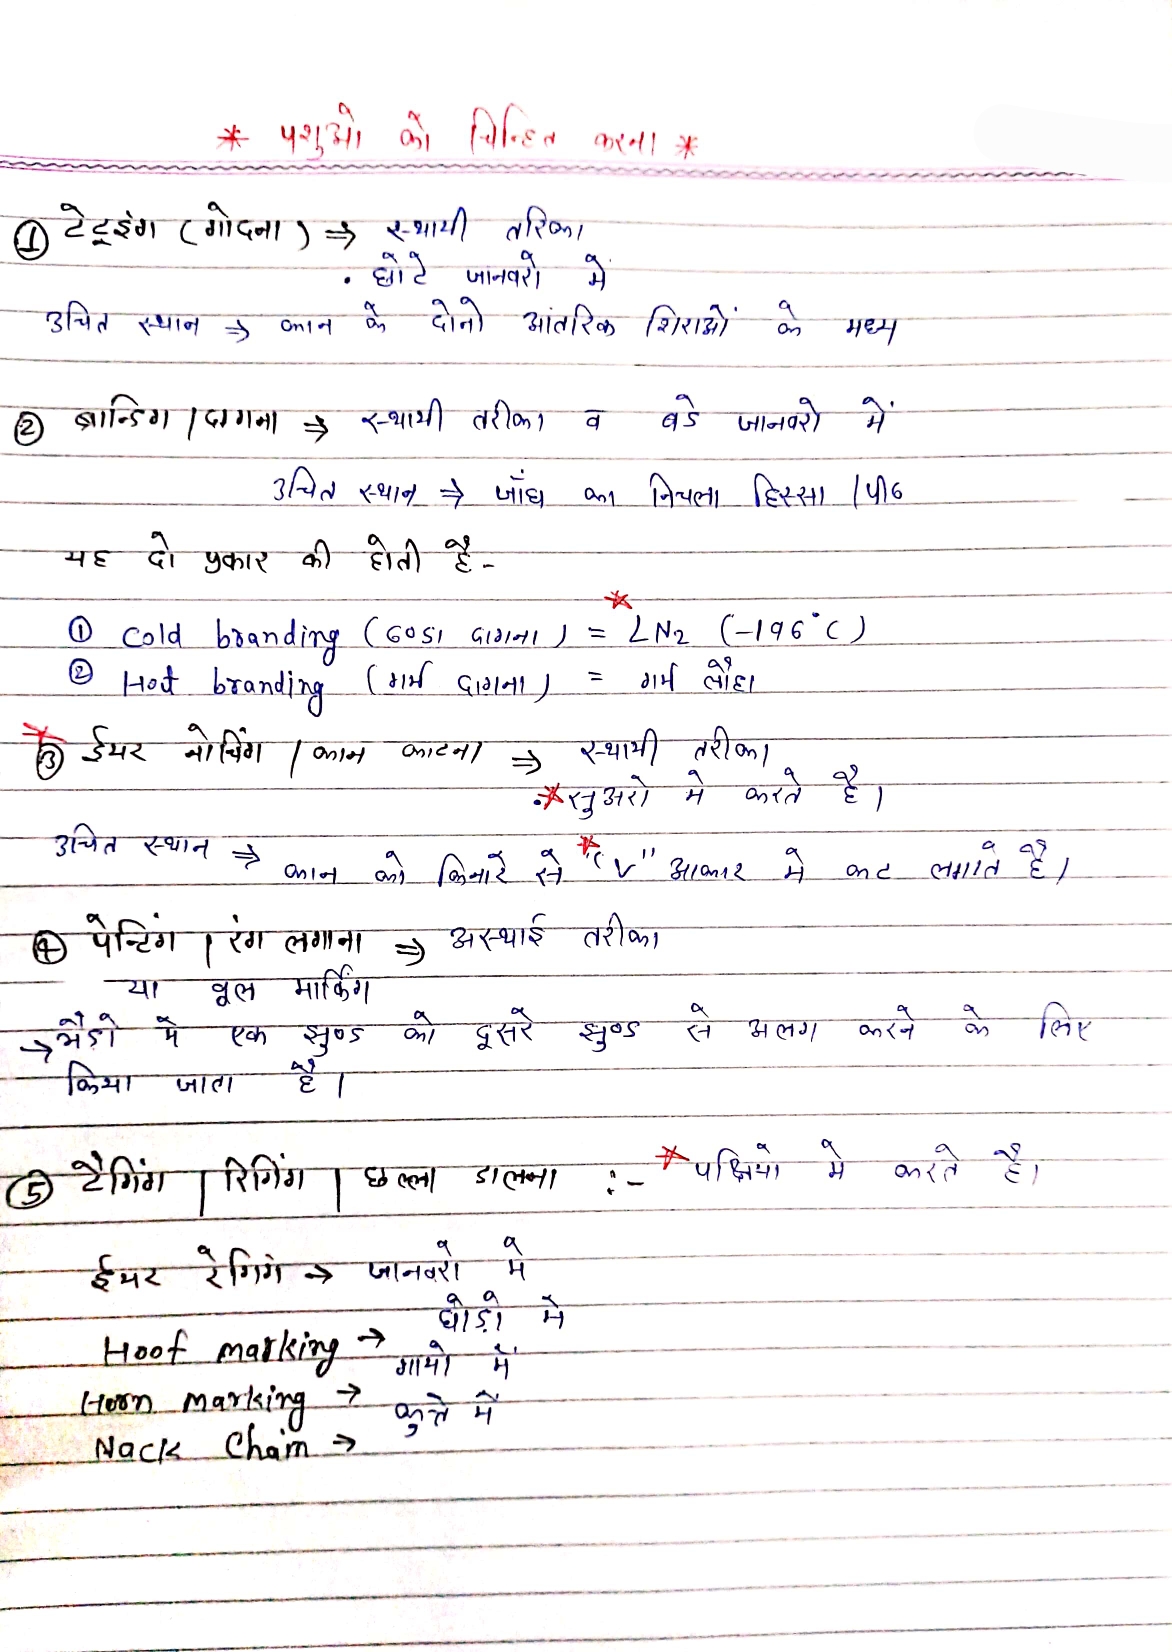 * पशुओ को चिन्हित करना *
① टेटूइंग (गोदना) ⇒ स्थायी तरिका
• छोटे जानवरो में
उचित स्थान ⇒ कान के दोनो आंतरिक शिराओं के मध्य
② ब्रान्डिग / दागना ⇒ स्थायी तरीका व बडे जानवरो में
उचित स्थान ⇒ जाँघ का निचला हिस्सा / पीठ
यह दो प्रकार की होती है -
① Cold branding (ठण्डा दागना) = LN2 (-196°C)
② Hot branding (गर्म दागना) = गर्म लौहा
③ ईयर नोचिंग / कान काटना ⇒ स्थायी तरीका
•* सुअरो मे करते है।
उचित स्थान ⇒ कान को किनारे से "V" आकार मे कट लगाते है।
④ पेन्टिंग / रंग लगाना ⇒ अस्थाई तरीका
या वूल मार्किंग
→ भैड़ो मे एक झुण्ड को दूसरे झुण्ड से अलग करने के लिए
किया जाता है।
⑤ टैगिंग / रिगिंग / छल्ला डालना :- * पक्षियो मे करते है।
ईयर रेगिगं → जानवरो मे
Hoof marking → घोड़ो मे
Horn marking → गायो में
Nack Chain → कुत्ते में